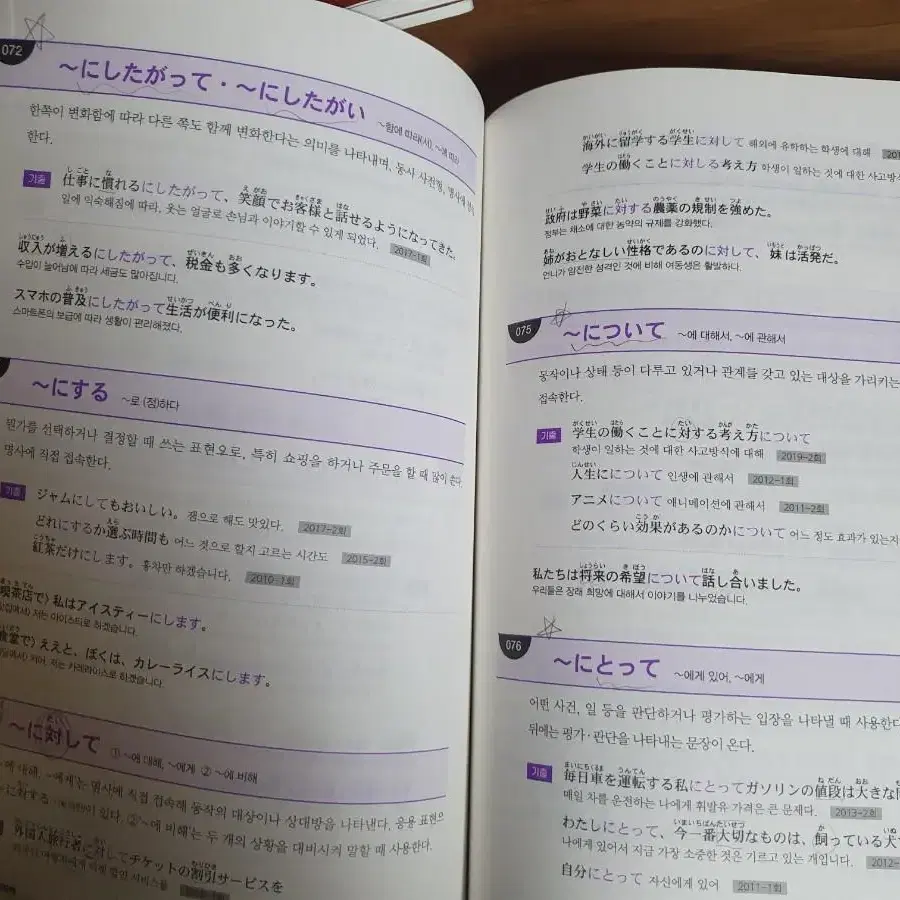 072
~にしたがって・~にしたがい ~함에 따라(서), ~에 따라
한쪽이 변화함에 따라 다른 쪽도 함께 변화한다는 의미를 나타내며, 동사 사전형, 명사에 접속
한다.
기출 仕事に慣れるにしたがって、笑顔でお客様と話せるようになってきた。
일에 익숙해짐에 따라, 웃는 얼굴로 손님과 이야기할 수 있게 되었다. 2017-1회
収入が増えるにしたがって、税金も多くなります。
수입이 늘어남에 따라 세금도 많아집니다.
スマホの普及にしたがって生活が便利になった。
스마트폰의 보급에 따라 생활이 편리해졌다.
~にする ~로 (정)하다
뭔가를 선택하거나 결정할 때 쓰는 표현으로, 특히 쇼핑을 하거나 주문을 할 때 많이 쓴다.
명사에 직접 접속한다.
기출 ジャムにしてもおいしい。 잼으로 해도 맛있다. 2017-2회
どれにするか選ぶ時間も 어느 것으로 할지 고르는 시간도 2015-2회
紅茶だけにします。 홍차만 하겠습니다. 2010-1회
喫茶店で) 私はアイスティーにします。
저는 아이스티로 하겠습니다.
食堂で) ええと、ぼくは、カレーライスにします。
저어, 저는 카레라이스로 하겠습니다.
~に対して ① ~에 대해, ~에게 ② ~에 비해
~에 대해, ~에게'는 명사에 직접 접속해 동작의 대상이나 상대방을 나타낸다. 응용 표현으
~に対する 이 있다. ②'~에 비해'는 두 개의 상황을 대비시켜 말할 때 사용한다.
外国人旅行者に対してチケットの割引サービスを
海外に留学する学生に対して 해외에 유학하는 학생에 대해
学生の働くことに対しる考え方 학생이 일하는 것에 대한 사고방식
政府は野菜に対する農薬の規制を強めた。
정부는 채소에 대한 농약의 규제를 강화했다.
姉がおとなしい性格であるのに対して、妹は活発だ。
언니가 얌전한 성격인 것에 비해 여동생은 활발하다.
075
~について ~에 대해서, ~에 관해서
동작이나 상태 등이 다루고 있거나 관계를 갖고 있는 대상을 가리키는
접속한다.
기출 学生の働くことに対する考え方について
학생이 일하는 것에 대한 사고방식에 대해 2019-2회
人生にについて 인생에 관해서 2012-1회
アニメについて 애니메이션에 관해서 2011-2회
どのくらい効果があるのかについて 어느 정도 효과가 있는지
私たちは将来の希望について話し合いました。
우리들은 장래 희망에 대해서 이야기를 나누었습니다.
076
~にとって ~에게 있어, ~에게
어떤 사건, 일 등을 판단하거나 평가하는 입장을 나타낼 때 사용한다
뒤에는 평가·판단을 나타내는 문장이 온다.
기출 毎日車を運転する私にとってガソリンの値段は大きな
매일 차를 운전하는 나에게 휘발유 가격은 큰 문제다. 2013-2회
わたしにとって、今一番大切なものは、飼っている犬
나에게 있어서 지금 가장 소중한 것은 기르고 있는 개입니다. 2012-
自分にとって 자신에게 있어 2011-1회